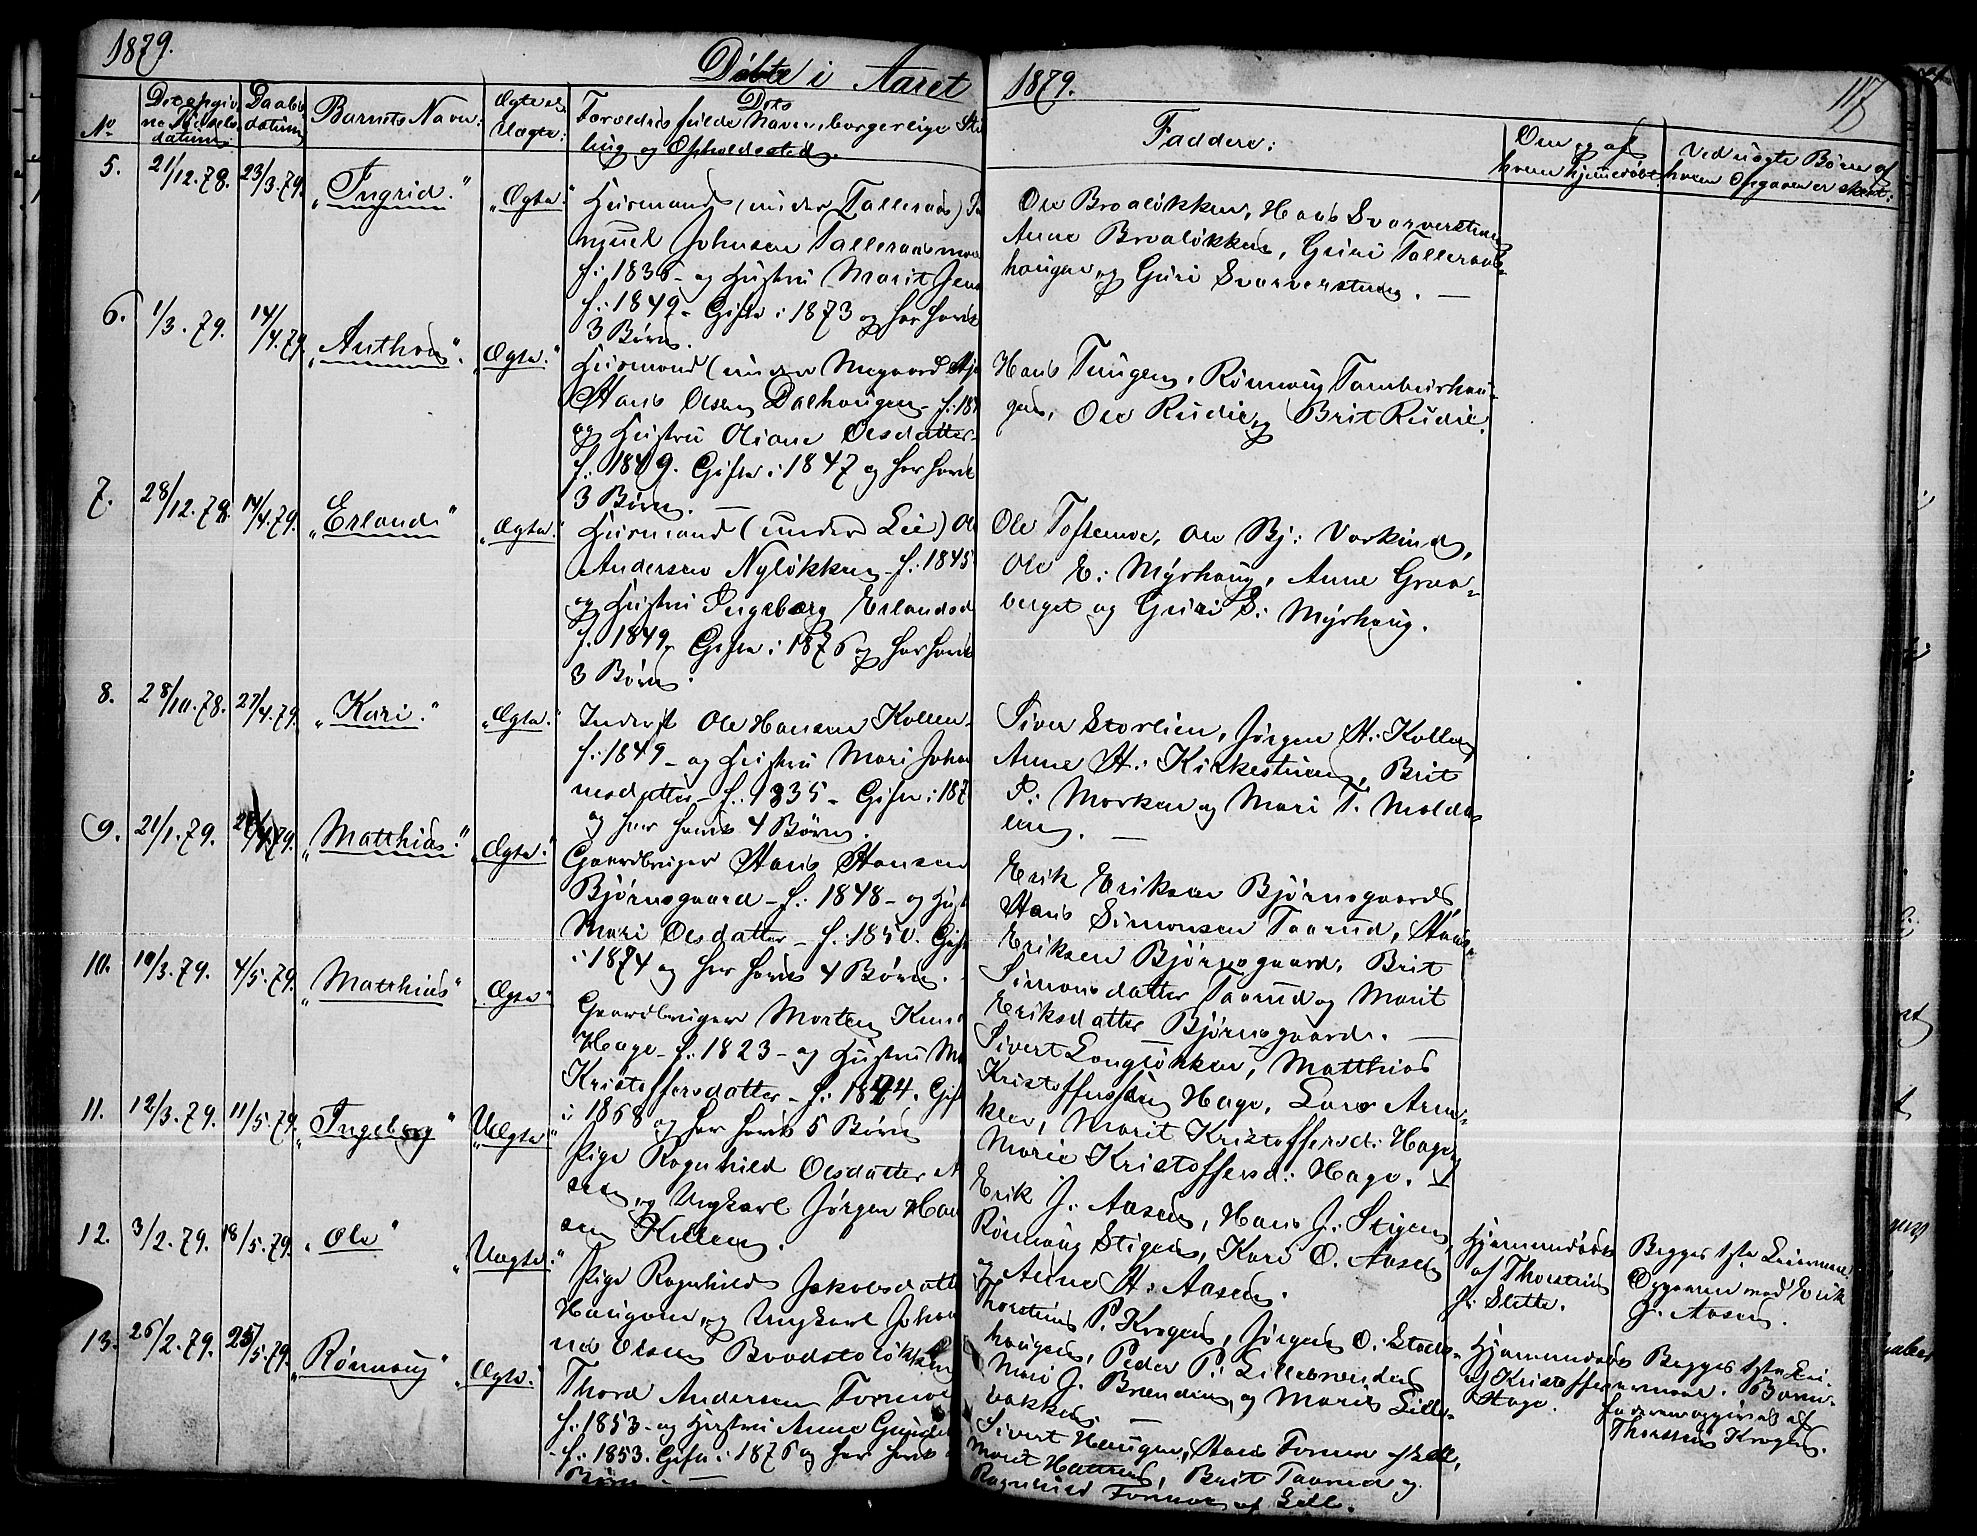 1879.
Døbte i Aaret 1879.
117
No
Barnets Navn.
Ægte el. Uægte:
Forældres fulde Navne, borgerlige Stil-
ling og Opholdssted.
Faddere:
Om og af
hvem hjemmedøbt
Ved uægte Børn af
hvem Opgaven er skeet:
5. 21/12.78. 23/3.79. "Ingrid." "Ægte."
Huusmand (under Talleraas)
Johnsen Talleraasmoe
f: 1836 - og Hustru Marit Jens
f: 1849 - Gifte i 1873 og har havt
3 Børn.
Ole Braaløkken, Hans Svarverstuen
Anne Braaløkken, Guri Talleraas-
haugen og Guri Svarverstuen. —
6. 1/3.79. 14/4.79. "Anthon". "Ægte."
Huusmand (under
Hans Olsen Dalhaugen - f: 184
og Hustru Oliane Olsdatter
f: 1849. Gifte i 1847 og har havt
3 Børn. —
Hans Tungen, Rønnoug Tambuurhau-
gen, Ole Rudie og Brit Rudie.
7. 28/12.78. 14/4.79. "Erland" "Ægte."
Huusmand (under Lie) Ole
Andersen Nyløkken - f: 1845
og Hustru Ingeborg Erlandsd
f: 1849. Gifte i 1876 og har havt
3 Børn.
Ole Toftemoe, Ole Bj: Vorkind,
Ole E: Myrhaug, Anne Graa-
berget og Guri S: Myrhaug.
8. 28/10.78. 27/4.79. "Kari." "Ægte."
Inderst Ole Hansen Kollen -
f: 1849 - og Hustru Mari Johan
nesdatter - f: 1835 - Gifte i 187
og har havt 4 Børn.
Siver Storlien, Jørgen H: Kollen
Anne H: Kirkestuen, Brit
P: Morken og Mari T. Molda-
len. —
9. 21/1.79. "Matthias." "Ægte."
Gaardbruger Hans Hansen
Bjørnsgaard - f: 1848 - og Hust
Mari Olsdatter - f: 1850. Gift
i 1874 og har havt 4 Børn.
Erik Eriksen Bjørnsgaard
Hans Simonsen Taarud, Hans
Eriksen Bjørnsgaard, Brit
Simonsdatter Taarud og Marit
Eriksdatter Bjørnsgaard. —
10. 10/3.79. 4/5.79. "Matthias" "Ægte"
Gaardbruger Morten Knud
Hage - f: 1823 - og Hustru Ma
Kristoffersdatter - f: 1844. Gift
i 1868 og har havt 5 Børn
Sivert Langløkken, Matthias
Kristoffersen Hage, Lars Arne-
klev, Marit Kristoffersd: Hage,
Marie Kristoffersd: Hage.
11. 12/3.79. 11/5.79. "Ingeborg" "Uægte"
Pige Ragnhild Olsdatter A
sen og Ungkarl Jørgen Han
sen Kollen.
Erik J. Aasen, Hans J. Stigen,
Rønnoug Stigen, Kari O. Aasen
og Anne H: Aasen.
Hjemmedøbt
af Thorstein
Slette.
Begges 1ste Leiermaal.
Opgaven med Erik
J. Aasen.
12. 3/2.79. 18/5.79. "Ole" "Uægte."
Pige Ragnhild Jakobsdatte
Haugom og Ungkarl Johan
nes Olsen Braadstoløkken
Thorstein P. Krogen, Jørgen O. Stads-
haugen, Peder P. Lillebrænden
Mari J. Brænden og Marit Lille-
bakken. —
Hjemmedøbt
af Kristoffer
Hage.
Begges 1ste Lei-
ermaal. Barne-
faderen opgivet af
Thorstein Krogen.
13. 26/2.79. 25/5.79. "Rønnoug" "Ægte."
Thord Andersen Formoe
f: 1853 - og Hustru Anne
- f: 1853. Gifte i 1876 og har havt
Børn —
Sivert Haugen, Hans Formoe af Sell,
Marit Hattrem, Brit Taarud og
Ragnhild Formoe af Sell.